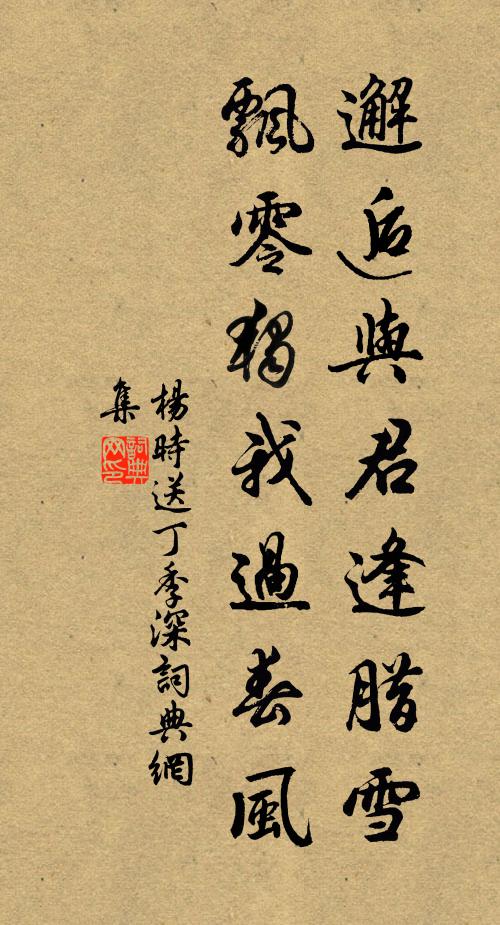 邂逅與君逢腊雪
飄零獨我過春風
楊時送丁季深詞典網
集
詞典
网印